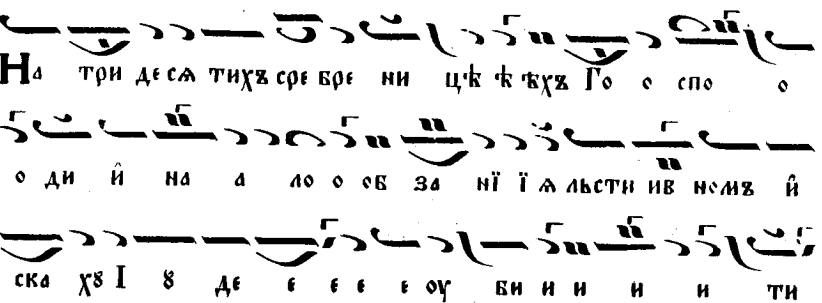 На три десѧ тихъ сре бре ни цѣ ѣ ѣхъ Го о спо о
о ди и҆ на а ло о об за нї ї ѧ льсти ив номъ и҆
ска хꙋ І ꙋ де е е е е оу би и и и и ти